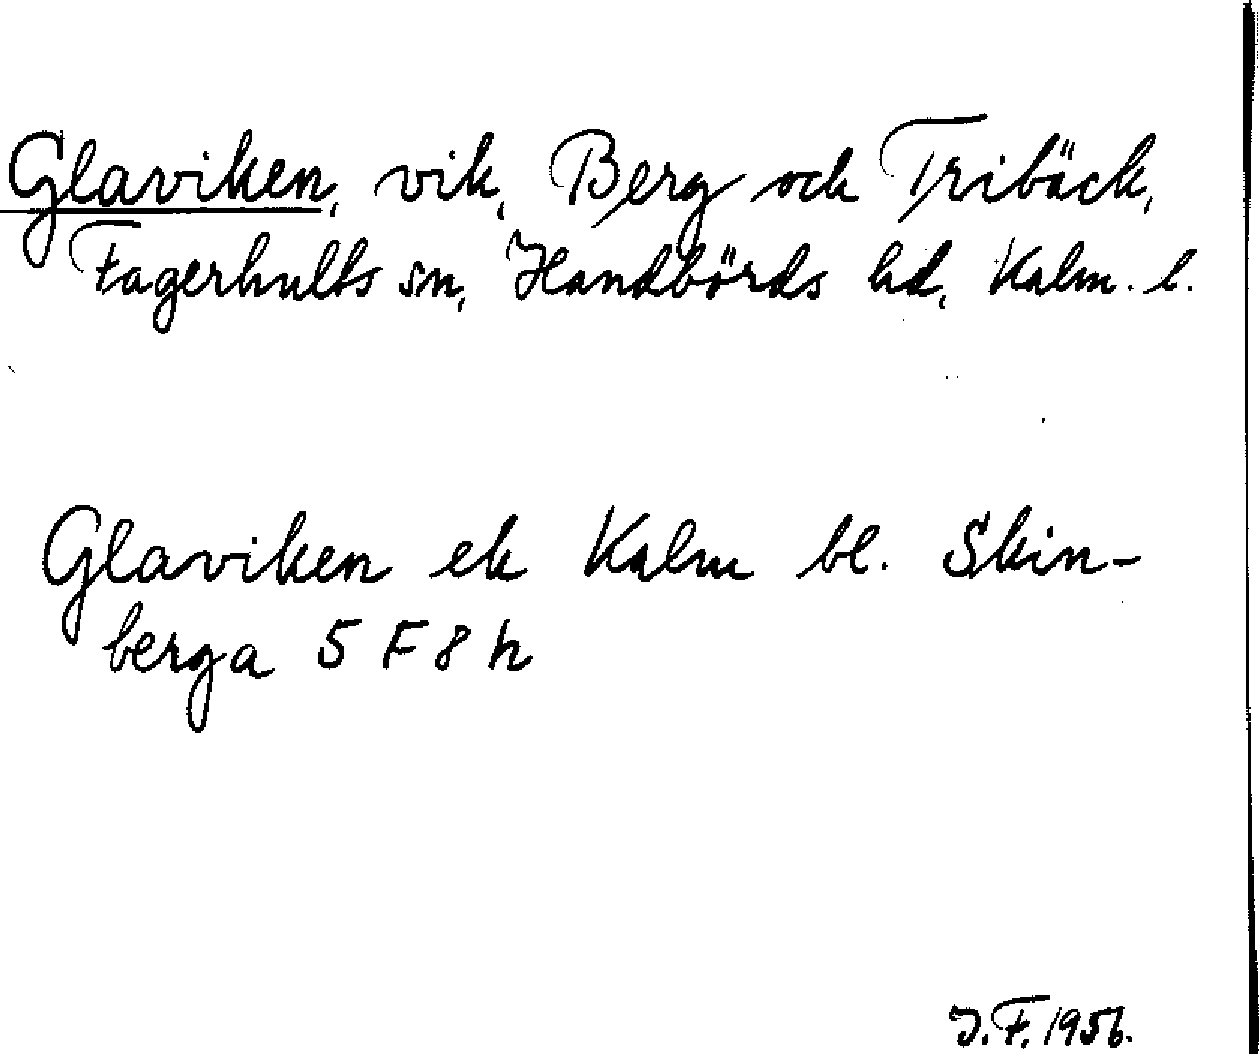 Glaviken, vik, Berg och Triback,
Fagerhults sn, Handbörds hd, Kalm. l.
Glaviken ek Kalm bl. Skin-
berga 5 F 8 h
J.F. 1956.